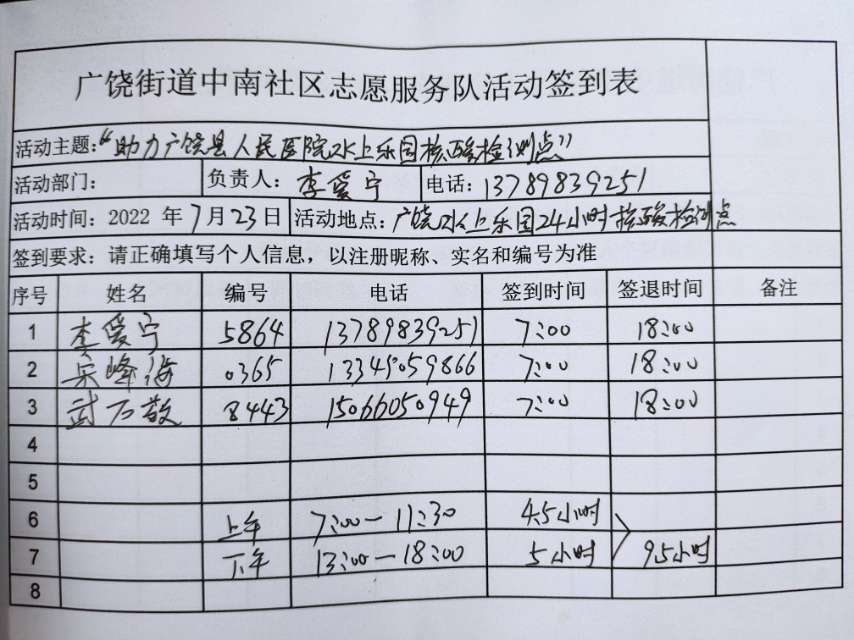 广饶街道中南社区志愿服务队活动签到表
活动主题:“助力广饶县人民医院水上乐园核酸检测点”
活动部门: 负责人: 李爱宁 电话: 13789839251
活动时间: 2022 年 7 月 23 日 活动地点: 广饶水上乐园24小时核酸检测点
签到要求: 请正确填写个人信息，以注册昵称、实名和编号为准
序号 姓名 编号 电话 签到时间 签退时间 备注
1 李爱宁 5864 13789839251 7:00 18:00
2 峰海 0365 13345059866 7:00 18:00
3 武万敬 8443 15066050949 7:00 18:00
4
5
6 上午 7:00—11:30 4.5小时
7 下午 13:00—18:00 5小时 9.5小时
8